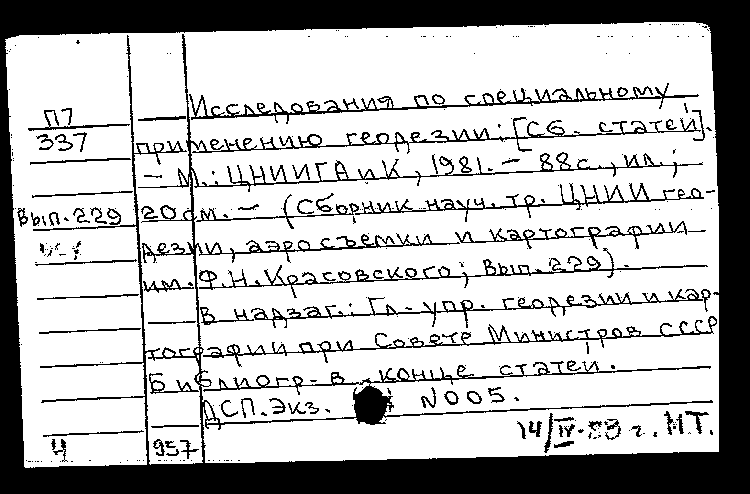 Исследования по специальному
П7
337
применению геодезии: [Сб. статей].
— М.: ЦНИИГАиК, 1981. — 88с., ил.;
Вып. 229
20см. — (Сборник науч. тр. ЦНИИ гео-
дезии, аэросъемки и картографии
им. Ф.Н. Красовского; Вып. 229).
В надзаг.: Гл. упр. геодезии и кар-
тографии при Совете Министров СССР
Библиогр. в конце статей.
ДСП. Экз. N005.
14/IV-83 г. М.Т.
Ч
957